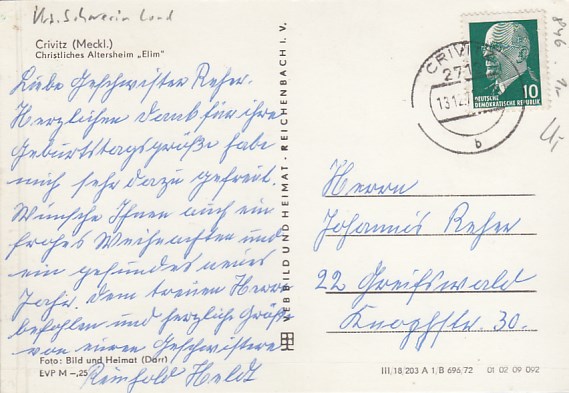 Krs. Schwerin Land
Crivitz (Meckl.)
Christliches Altersheim „Elim"
Liebe Geschwister Reher.
Herzlichen Dank für ihre
Geburtstagsgrüße habe
mich sehr dazu gefreut.
Wünsche Ihnen auch ein
frohes Weihnachten und
ein gesundes neues
Jahr. Dem treuen Herrn
befohlen und herzliche Grüße
von euren Geschwistern
Reinhold Heldt
Foto: Bild und Heimat (Darr)
EVP M –,25
VEB BILD UND HEIMAT · REICHENBACH I. V.
CRIVITZ
271
13.12.
b
DEUTSCHE
DEMOKRATISCHE REPUBLIK
10
Herrn
Johannis Reher
22 Greifswald
Knopfstr. 30.
III/18/203 A 1/B 696/72 01 02 09 092